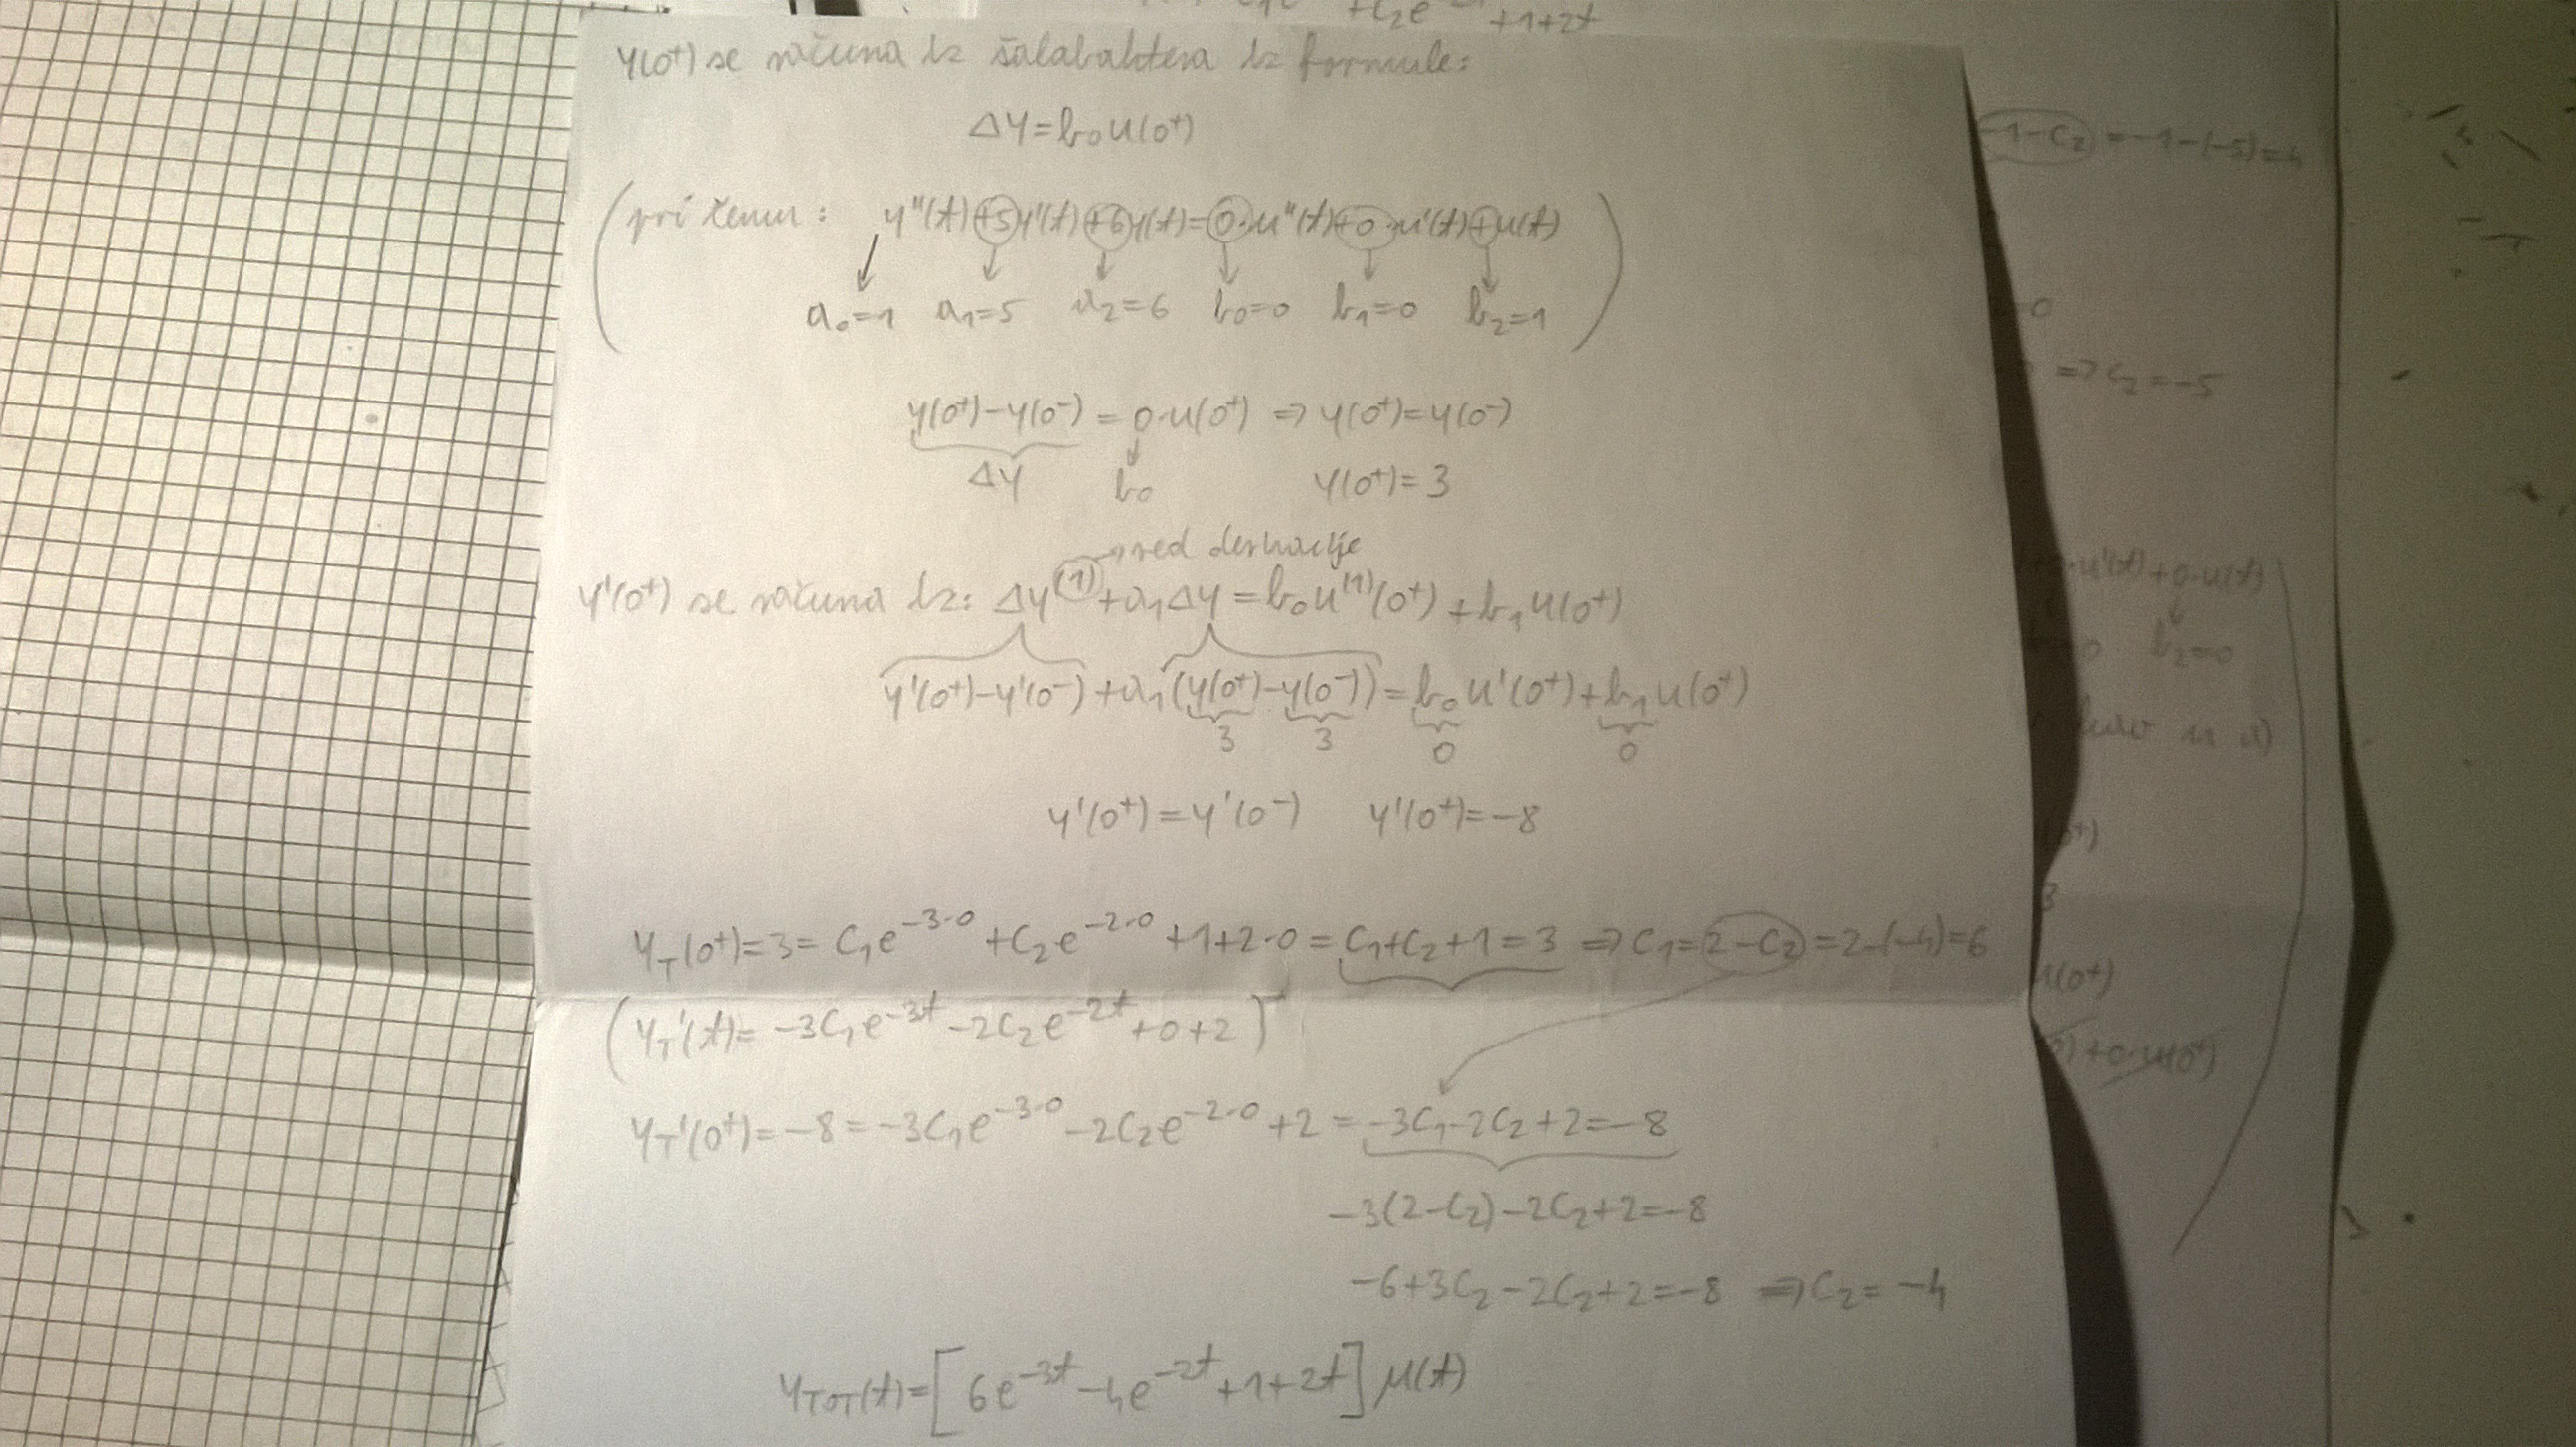 +C₂e +1+2t
y(0⁺) se računa iz šalabahtera iz formule:
Δy=b₀u(0⁺)
-1-C₂ = -1-(-5)=4
(pri čemu: y''(t)+5y'(t)+6y(t)=0·u''(t)+0·u'(t)+u(t))
a₀=1 a₁=5 a₂=6 b₀=0 b₁=0 b₂=1
=0
⇒C₂=-5
y(0⁺)-y(0⁻)=0·u(0⁺) ⇒ y(0⁺)=y(0⁻)
Δy b₀ y(0⁺)=3
→red derivacije
y'(0⁺) se računa iz: Δy⁽¹⁾+a₁Δy=b₀u⁽¹⁾(0⁺)+b₁u(0⁺)
·u'(t)+0·u(t)
b₂=0
y'(0⁺)-y'(0⁻)+a₁(y(0⁺)-y(0⁻))=b₀u'(0⁺)+b₁u(0⁺)
3 3 0 0
y'(0⁺)=y'(0⁻) y'(0⁺)=-8
3
y_T(0⁺)=3=C₁e^{-3·0}+C₂e^{-2·0}+1+2·0=C₁+C₂+1=3 ⇒C₁=2-C₂=2-(-4)=6
u(0⁺)
(y_T'(t)=-3C₁e^{-3t}-2C₂e^{-2t}+0+2)
+0·u(0⁺)
y_T'(0⁺)=-8=-3C₁e^{-3·0}-2C₂e^{-2·0}+2=-3C₁-2C₂+2=-8
-3(2-C₂)-2C₂+2=-8
-6+3C₂-2C₂+2=-8 ⇒C₂=-4
y_TOT(t)=[6e^{-3t}-4e^{-2t}+1+2t]μ(t)